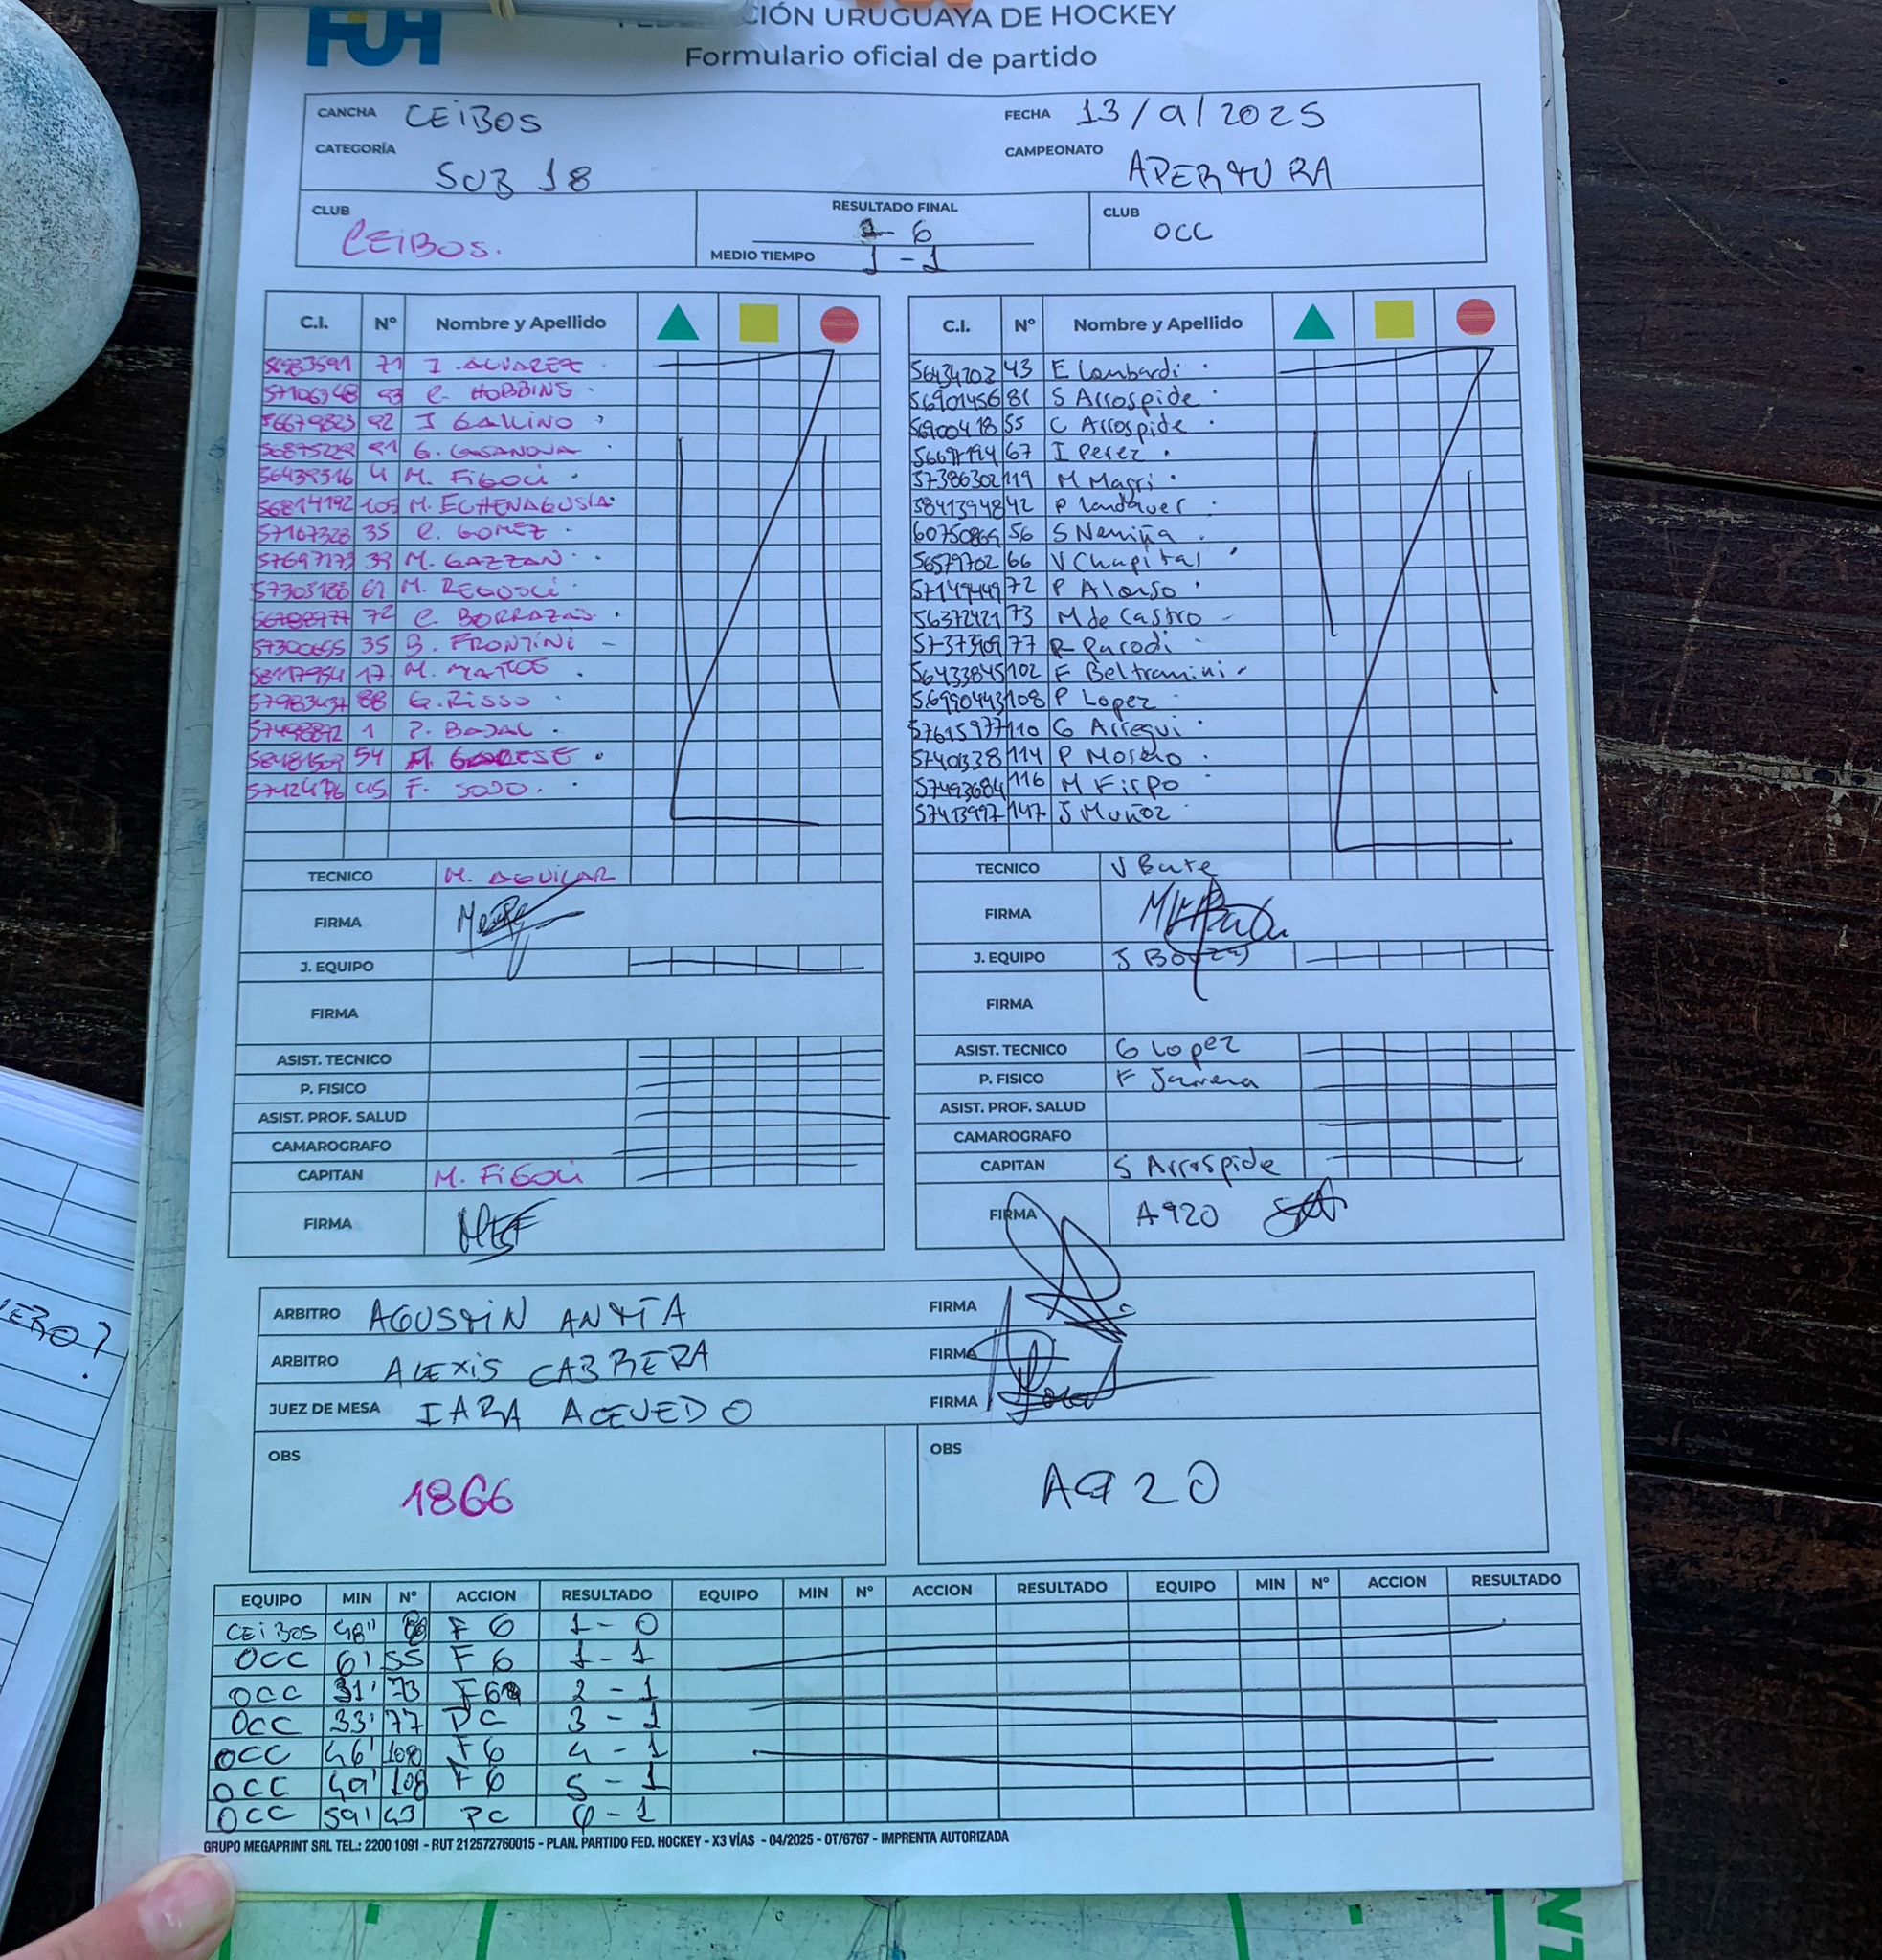 FUH
CIÓN URUGUAYA DE HOCKEY
Formulario oficial de partido
CANCHA CEIBOS FECHA 13/9/2025
CATEGORÍA SUB 18 CAMPEONATO APERTURA
CLUB CEIBOS. RESULTADO FINAL 1-6 CLUB OCC
MEDIO TIEMPO 1-1
C.I. Nº Nombre y Apellido C.I. Nº Nombre y Apellido
71 I. ALVAREZ 56434202 43 E Lombardi
C. HOBBINS 56901456 81 S Arrospide
92 I GALLINO 55 C Arrospide
G. CASANOVA 67 I Perez
56439316 4 M. FIGOLI 57386302 119 M Magri
56814192 105 M. ECHENAGUSIA 58413948 42 P Landauer
57167328 35 C. GOMEZ 60750869 56 S Nemiña
39 M. GAZZAN 56579702 66 V Chapital
M. 72 P Alonso
72 C. BORRAZAS 56372421 73 M de Castro
57300655 35 B. FRONTINI 77 R Parodi
58117954 17 M. 56433845 102 F Beltramini
57983437 88 G. RISSO 56990443 108 P Lopez
57498872 1 57615977 110 G Arregui
54 57401338 114 P Moreno
45 F. 57493684 116 M Firpo
57413997 147 J Muñoz
TECNICO M. AGUILAR TECNICO V Bate
FIRMA FIRMA
J. EQUIPO J. EQUIPO
FIRMA FIRMA
ASIST. TECNICO ASIST. TECNICO G Lopez
P. FISICO P. FISICO F
ASIST. PROF. SALUD ASIST. PROF. SALUD
CAMAROGRAFO CAMAROGRAFO
CAPITAN M. FIGOLI CAPITAN S Arrospide
FIRMA FIRMA A920
ARBITRO AGUSTIN FIRMA
ARBITRO ALEXIS CABRERA FIRMA
JUEZ DE MESA IARA ACEVEDO FIRMA
OBS 1866 OBS A920
EQUIPO MIN Nº ACCION RESULTADO EQUIPO MIN Nº ACCION RESULTADO EQUIPO MIN Nº ACCION RESULTADO
CEIBOS 48" FG 1-0
OCC 6' 55 FG 1-1
OCC 31' 73 FG 2-1
OCC 33' 77 PC 3-1
OCC 46' 108 FG 4-1
OCC 49' 108 FG 5-1
OCC 59' 43 PC 6-1
GRUPO MEGAPRINT SRL TEL.: 2200 1091 - RUT 212572760015 - PLAN. PARTIDO FED. HOCKEY - X3 VÍAS - 04/2025 - OT/6767 - IMPRENTA AUTORIZADA